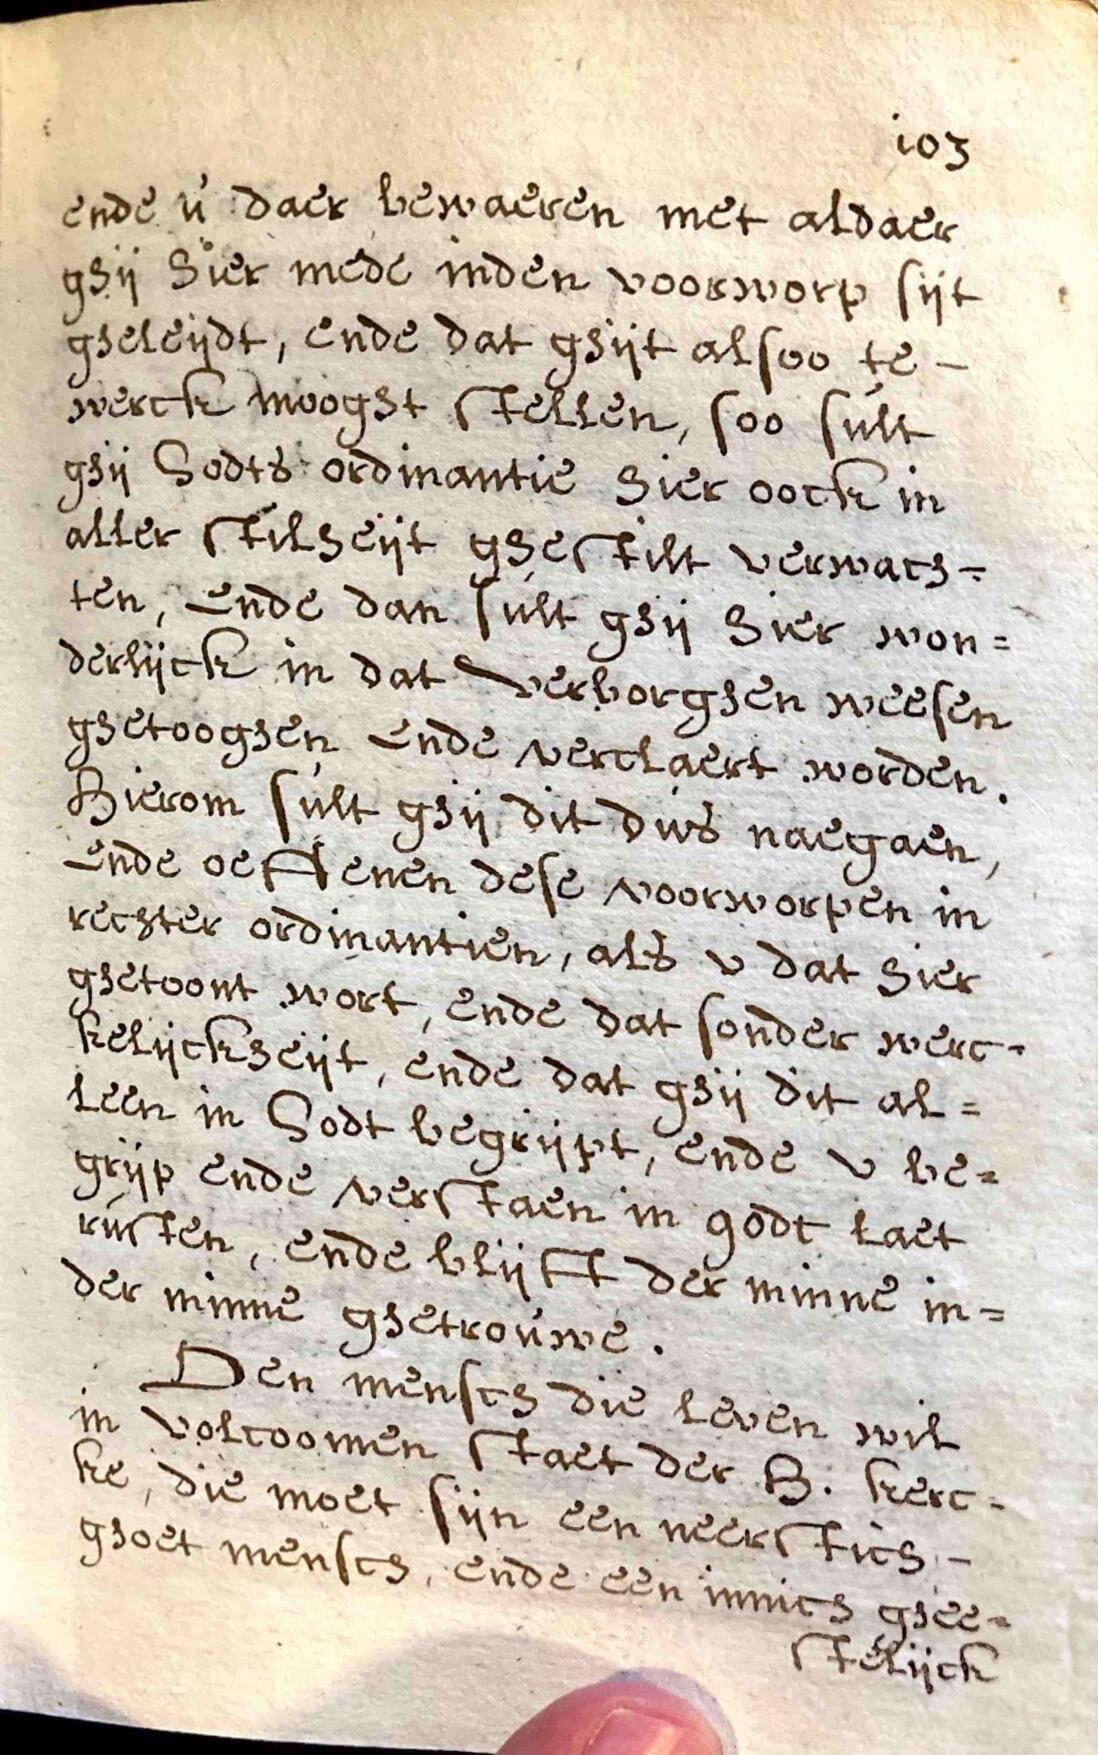 103
ende ú daer bewaeren met aldaer
ghij hier mede inden voorworp sijt
gheleijdt, ende dat ghijt alsoo te -
werck mooght stellen, soo súlt
ghij Godts ordinantie hier oock in
aller stilheijt ghestilt verwach=
ten, ende dan sult ghij hier won=
derlijck in dat verborghen weesen
ghetooghen ende verclaert worden.
Hierom súlt ghij dit dús naegaen,
ende oeffenen dese voorworpen in
rechter ordinantien, als v dat hier
ghetoont wort, ende dat sonder werc-
kelijckheijt, ende dat ghij dit al=
leen in Godt begrijpt, ende v be=
grijp ende verstaen in godt laet
rústen, ende blijft der minne in=
der minne ghetroúwe.
Den mensch die leven wil
in volcoomen staet der H. kerc=
ke, die moet sijn een neerstich -
ghoet mensch, ende een innich ghee=
stelijck